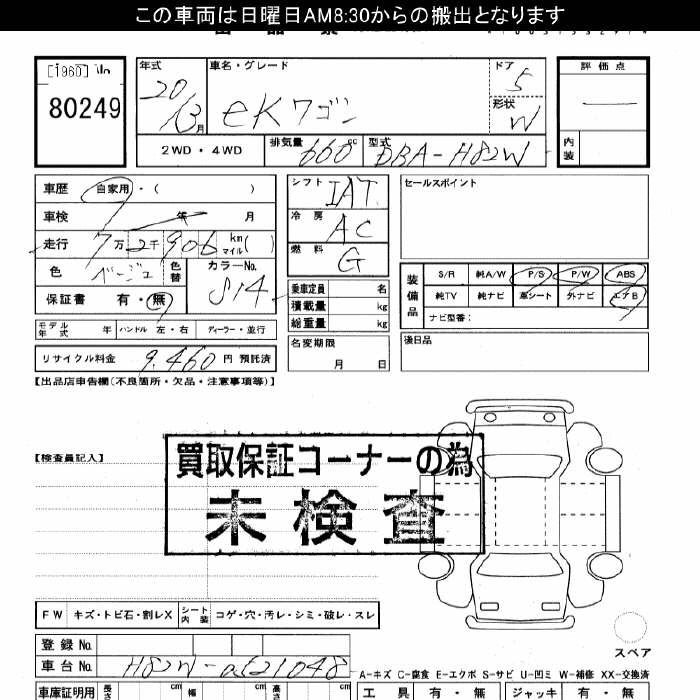 この車両は日曜日AM8:30からの搬出となります
[1960] No
80249
年式 車名・グレード ドア 評価点
20 13月 eKワゴン 5
形状 W
2WD・4WD 排気量 660cc 型式 DBA-H82W 内装
車歴 自家用・( )
車検 年 月
走行 7万2千906 km マイル( )
色 ベージュ 色替 カラーNo. S14
保証書 有・無
シフト IAT
冷房 AC
燃料 G
乗車定員 名
積載量 kg
総重量 kg
セールスポイント
装備品 S/R 純A/W P/S P/W ABS
純TV 純ナビ 革シート 外ナビ エアB
ナビ型番:
モデル年式 年 ハンドル 左・右 ディーラー・並行
名変期限 月 日
後日品
リサイクル料金 9,460 円 預託済
【出品店申告欄(不良箇所・欠品・注意事項等)】
【検査員記入】
買取保証コーナーの為
未検査
FW キズ・トビ石・割レX シート内装 コゲ・穴・汚レ・シミ・破レ・スレ
スペア
登録No.
車台No. H82W-
A-キズ C-腐食 E-エクボ S-サビ U-凹ミ W-補修 XX-交換済
車庫証明用 長さ cm 幅 cm 高さ cm 工具 有・無 ジャッキ 有・無